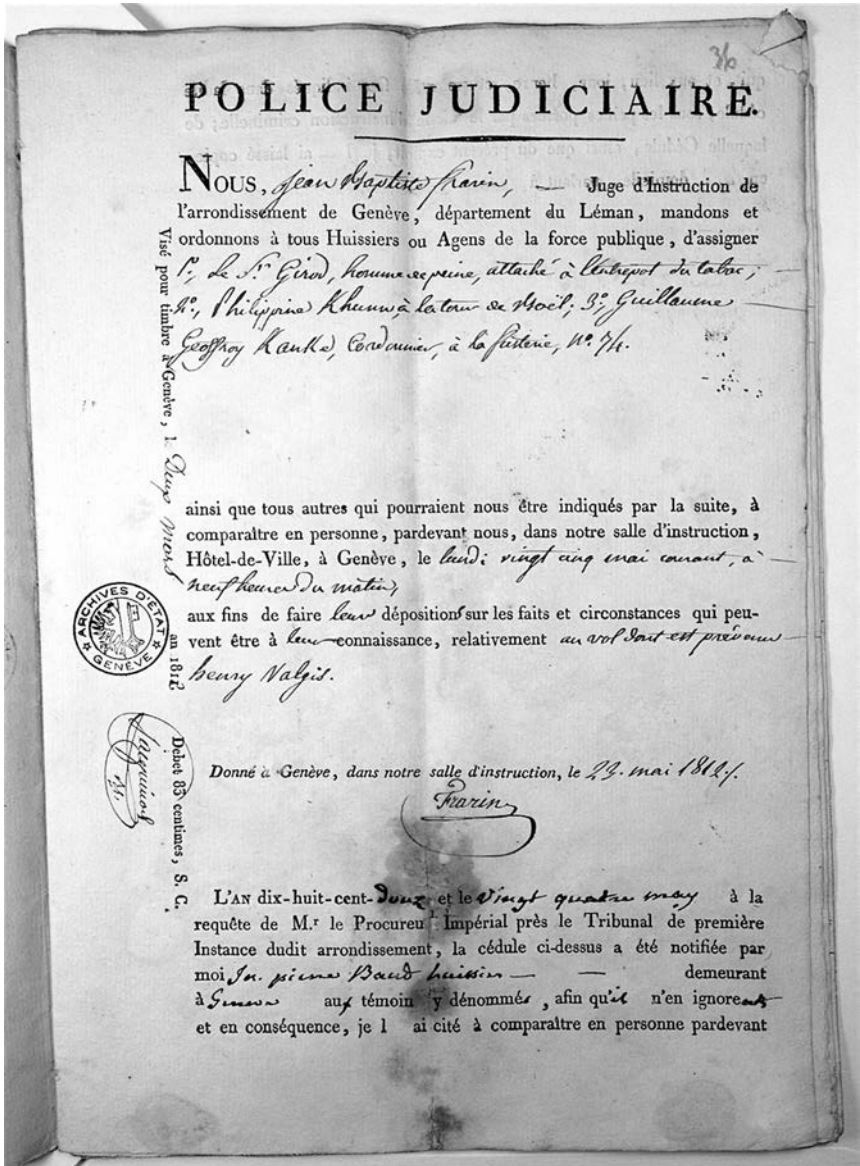 36
POLICE JUDICIAIRE.
NOUS, Jean Baptiste Frarin, — Juge d'Instruction de
l'arrondissement de Genève, département du Léman, mandons et
ordonnons à tous Huissiers ou Agens de la force publique, d'assigner
1°, Le Sr Girod, homme de peine, attaché à l'entrepot du tabac; —
2°, Philippine Khunn, à la tour de Boël; 3°, Guillaume —
Geoffroy Kanke, Cordonnier, à la fusterie, N°. 74.
ainsi que tous autres qui pourraient nous être indiqués par la suite, à
comparaître en personne, pardevant nous, dans notre salle d'instruction,
Hôtel-de-Ville, à Genève, le lundi vingt cinq mai courant, à —
neuf heures du matin,
aux fins de faire leurs dépositions sur les faits et circonstances qui peu-
vent être à leur connaissance, relativement au vol dont est prévenu —
henry Valgis.
Donné à Genève, dans notre salle d'instruction, le 23. mai 1812./.
Frarin
L'AN dix-huit-cent-douze et le vingt quatre may à la
requête de M.r le Procureur Impérial près le Tribunal de première
Instance dudit arrondissement, la cédule ci-dessus a été notifiée par
moi Jn. pierre Baud huissier — — demeurant
à Geneve aux témoin y dénommés, afin qu'il n'en ignorent
et en conséquence, je l ai cité à comparaître en personne pardevant
Visé pour timbre à Genève, le Deux mars an 1812
Debet 83 centimes, S. C.
ARCHIVES D'ETAT
GENÈVE